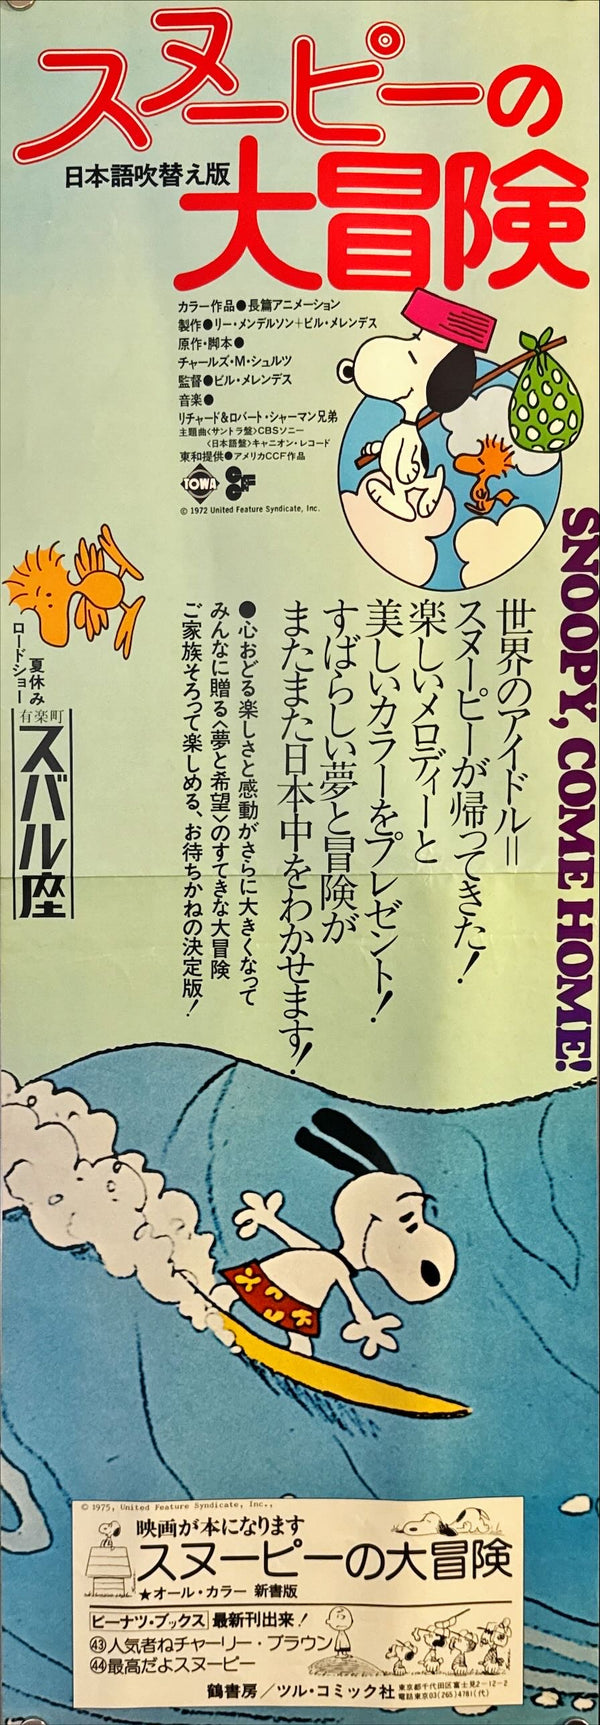 スヌーピーの
大冒険
日本語吹替え版
カラー作品●長篇アニメーション
製作●リー・メンデルソン+ビル・メレンデス
原作・脚本●
チャールズ・M・シュルツ
監督●ビル・メレンデス
音楽●
リチャード&ロバート・シャーマン兄弟
主題曲〈サントラ盤〉CBSソニー
〈日本語盤〉キャニオン・レコード
東和提供●アメリカCCF作品
TOWA
© 1972 United Feature Syndicate, Inc.
SNOOPY, COME HOME!
世界のアイドル=
スヌーピーが帰ってきた!
楽しいメロディーと
美しいカラーをプレゼント!
すばらしい夢と冒険が
またまた日本中をわかせます!
●心おどる楽しさと感動がさらに大きくなって
みんなに贈る〈夢と希望〉のすてきな大冒険
ご家族そろって楽しめる、お待ちかねの決定版!
夏休み
ロードショー
有楽町
スバル座
© 1975, United Feature Syndicate, Inc.,
映画が本になります
スヌーピーの大冒険
★オール・カラー 新書版
ピーナツ・ブックス 最新刊出来!
㊸人気者ねチャーリー・ブラウン
㊹最高だよスヌーピー
鶴書房/ツル・コミック社
東京都千代田区富士見2-12-2
電話東京03(265)4781(代)